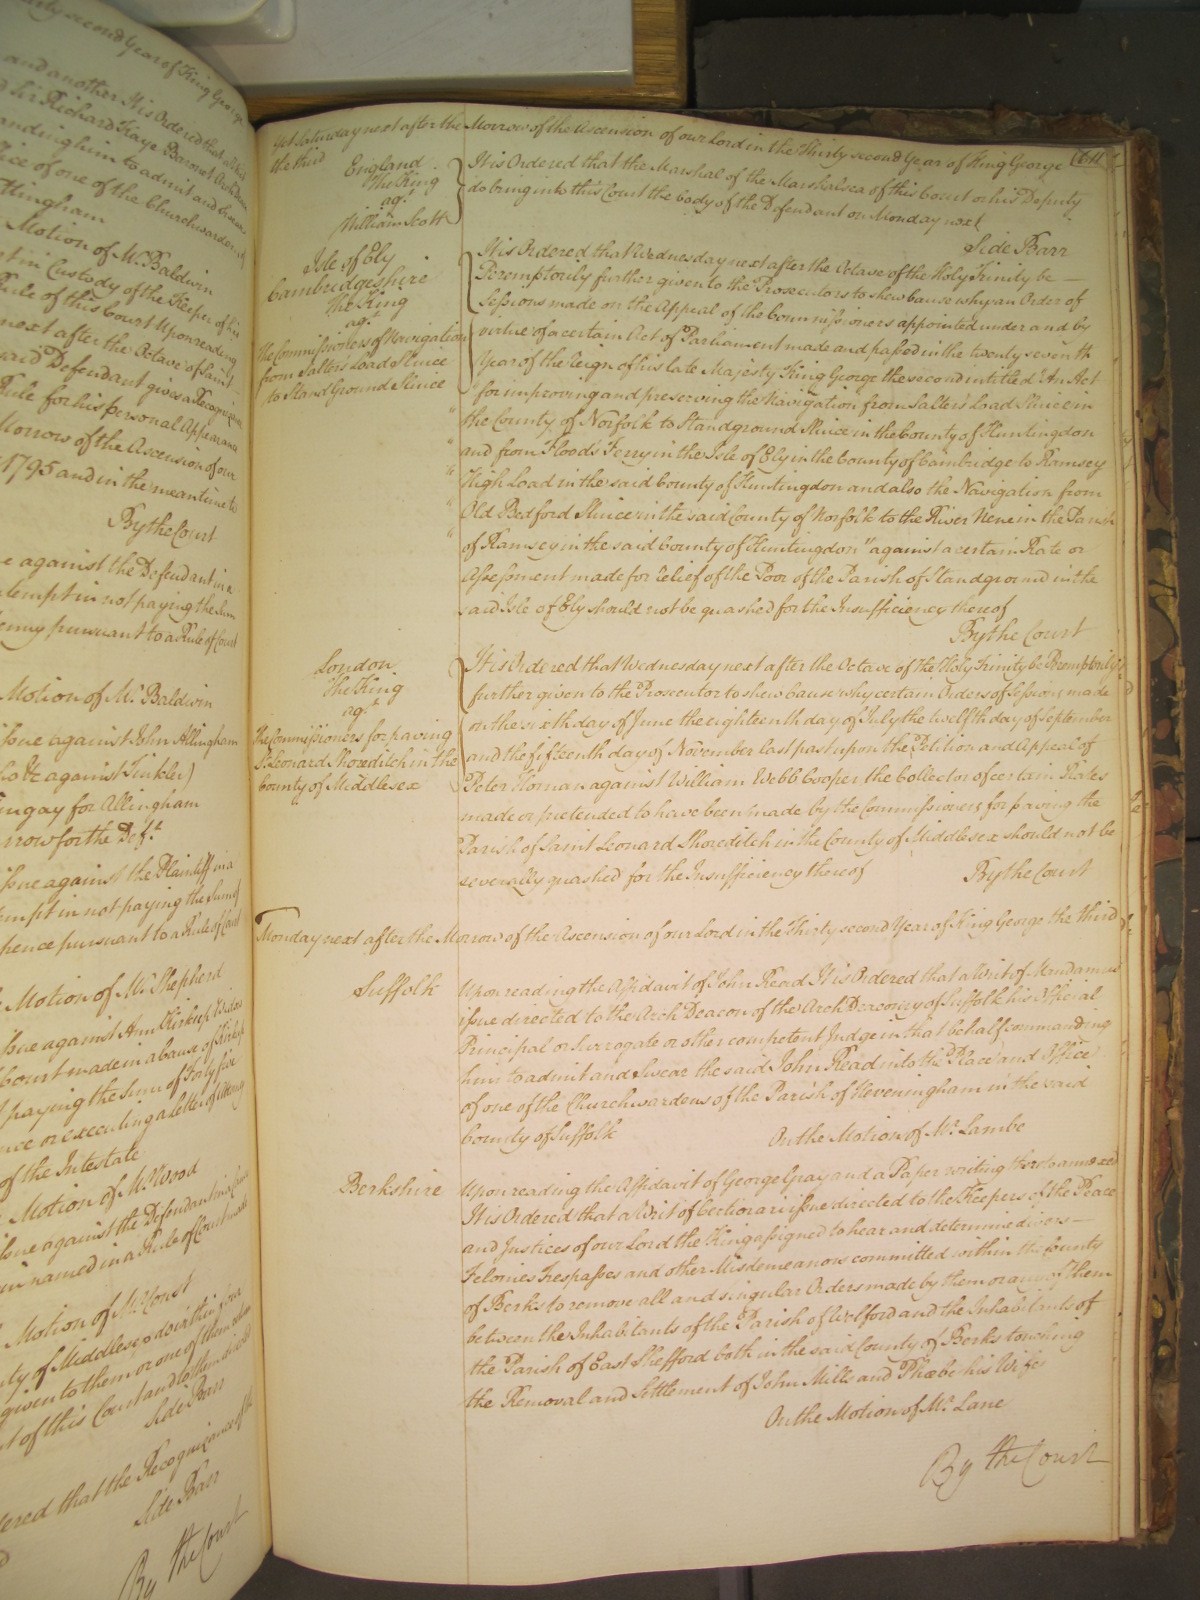 rty second Year of King George
and another It is Ordered that a Writ
Sir Richard Kaye Baronet Arch Deacon
anding him to admit and swear
fice of one of the Churchwardens of
ttingham
Motion of Mr. Baldwin
t in Custody of the Keeper of his
Rule of this Court Upon reading
next after the Octave of Saint
said Defendant gives a Recognizance
Rule for his personal Appearance
Morrow of the Ascension of our
1795 and in the meantime to
By the Court
e against the Defendant in a
tempt in not paying the Sum
enny pursuant to a Rule of Court
Motion of Mr. Baldwin
issue against John Allingham
against Tinkler)
ingay for Allingham
now for the Deft.
issue against the Plaintiff in a
empt in not paying the Sum of
pence pursuant to a Rule of Court
Motion of Mr. Shepherd
issue against Ann Widow
Court made in a Cause of
paying the Sum of Forty five
nce or executing a Letter of Attorney
of the Intestate
Motion of Mr. Wood
issue against the Defendant
in named in a Rule of Court made
Motion of Mr. Const
ty of Middlesex do within four
given to them or one of them return
t of this Court and
Side Barr
ered that the Recognizance of the
Side Barr
By the Court
Yet Saturday next after the Morrow of the Ascension of our Lord in the Thirty second Year of King George
the third
England
The King
agt.
William Scott
It is Ordered that the Marshal of the Marshalsea of this Court or his Deputy
do bring into this Court the body of the Defendant on Monday next
Side Barr
Isle of Ely
Cambridgeshire
The King
agt.
The Commissioners of Navigation
from Salters Load Sluice
to Stand Ground Sluice
It is Ordered that Wednesday next after the Octave of the Holy Trinity be
Peremptorily further given to the Prosecutors to shew Cause why an Order of
Sessions made on the Appeal of the Commissioners appointed under and by
virtue of a certain Act of Parliament made and passed in the twenty seventh
Year of the Reign of his late Majesty King George the second intitled "An Act
" for improving and preserving the Navigation from Salters Load Sluice in
" the County of Norfolk to Standground Sluice in the County of Huntingdon
" and from Floods Ferry in the Isle of Ely in the County of Cambridge to Ramsey
" High Load in the said County of Huntingdon and also the Navigation from
" Old Bedford Sluice in the said County of Norfolk to the River Nene in the Parish
" of Ramsey in the said County of Huntingdon" against a certain Rate or
Assessment made for relief of the Poor of the Parish of Standground in the
said Isle of Ely should not be quashed for the Insufficiency thereof
By the Court
London
The King
agt.
The Commissioners for paving
St. Leonard Shoreditch in the
County of Middlesex
It is Ordered that Wednesday next after the Octave of the Holy Trinity be Peremptorily
further given to the Prosecutor to shew Cause why certain Orders of Sessions made
on the sixth day of June the eighteenth day of July the twelfth day of September
and the fifteenth day of November last past upon the Petition and Appeal of
Peter Homan against William Webb Cooper the Collector of certain Rates
made or pretended to have been made by the Commissioners for paving the
Parish of Saint Leonard Shoreditch in the County of Middlesex should not be
severally quashed for the Insufficiency thereof
By the Court
Monday next after the Morrow of the Ascension of our Lord in the Thirty second Year of King George the third
Suffolk
Upon reading the Affidavit of John Read It is Ordered that a Writ of Mandamus
issue directed to the Arch Deacon of the Arch Deaconry of Suffolk his Official
Principal or Surrogate or other competent Judge in that behalf commanding
him to admit and Swear the said John Read into the Place and Office
of one of the Churchwardens of the Parish of Heveningham in the said
County of Suffolk
On the Motion of Mr. Lambe
Berkshire
Upon reading the Affidavit of George Gray and a Paper writing thereto annexed
It is Ordered that a Writ of Certiorari issue directed to the Keepers of the Peace
and Justices of our Lord the King assigned to hear and determine divers
Felonies Trespasses and other Misdemeanors committed within the County
of Berks to remove all and singular Orders made by them or any of them
between the Inhabitants of the Parish of Welford and the Inhabitants of
the Parish of East Shefford both in the said County of Berks touching
the Removal and Settlement of John Mills and Phœbe his Wife
On the Motion of Mr. Lane
By the Court